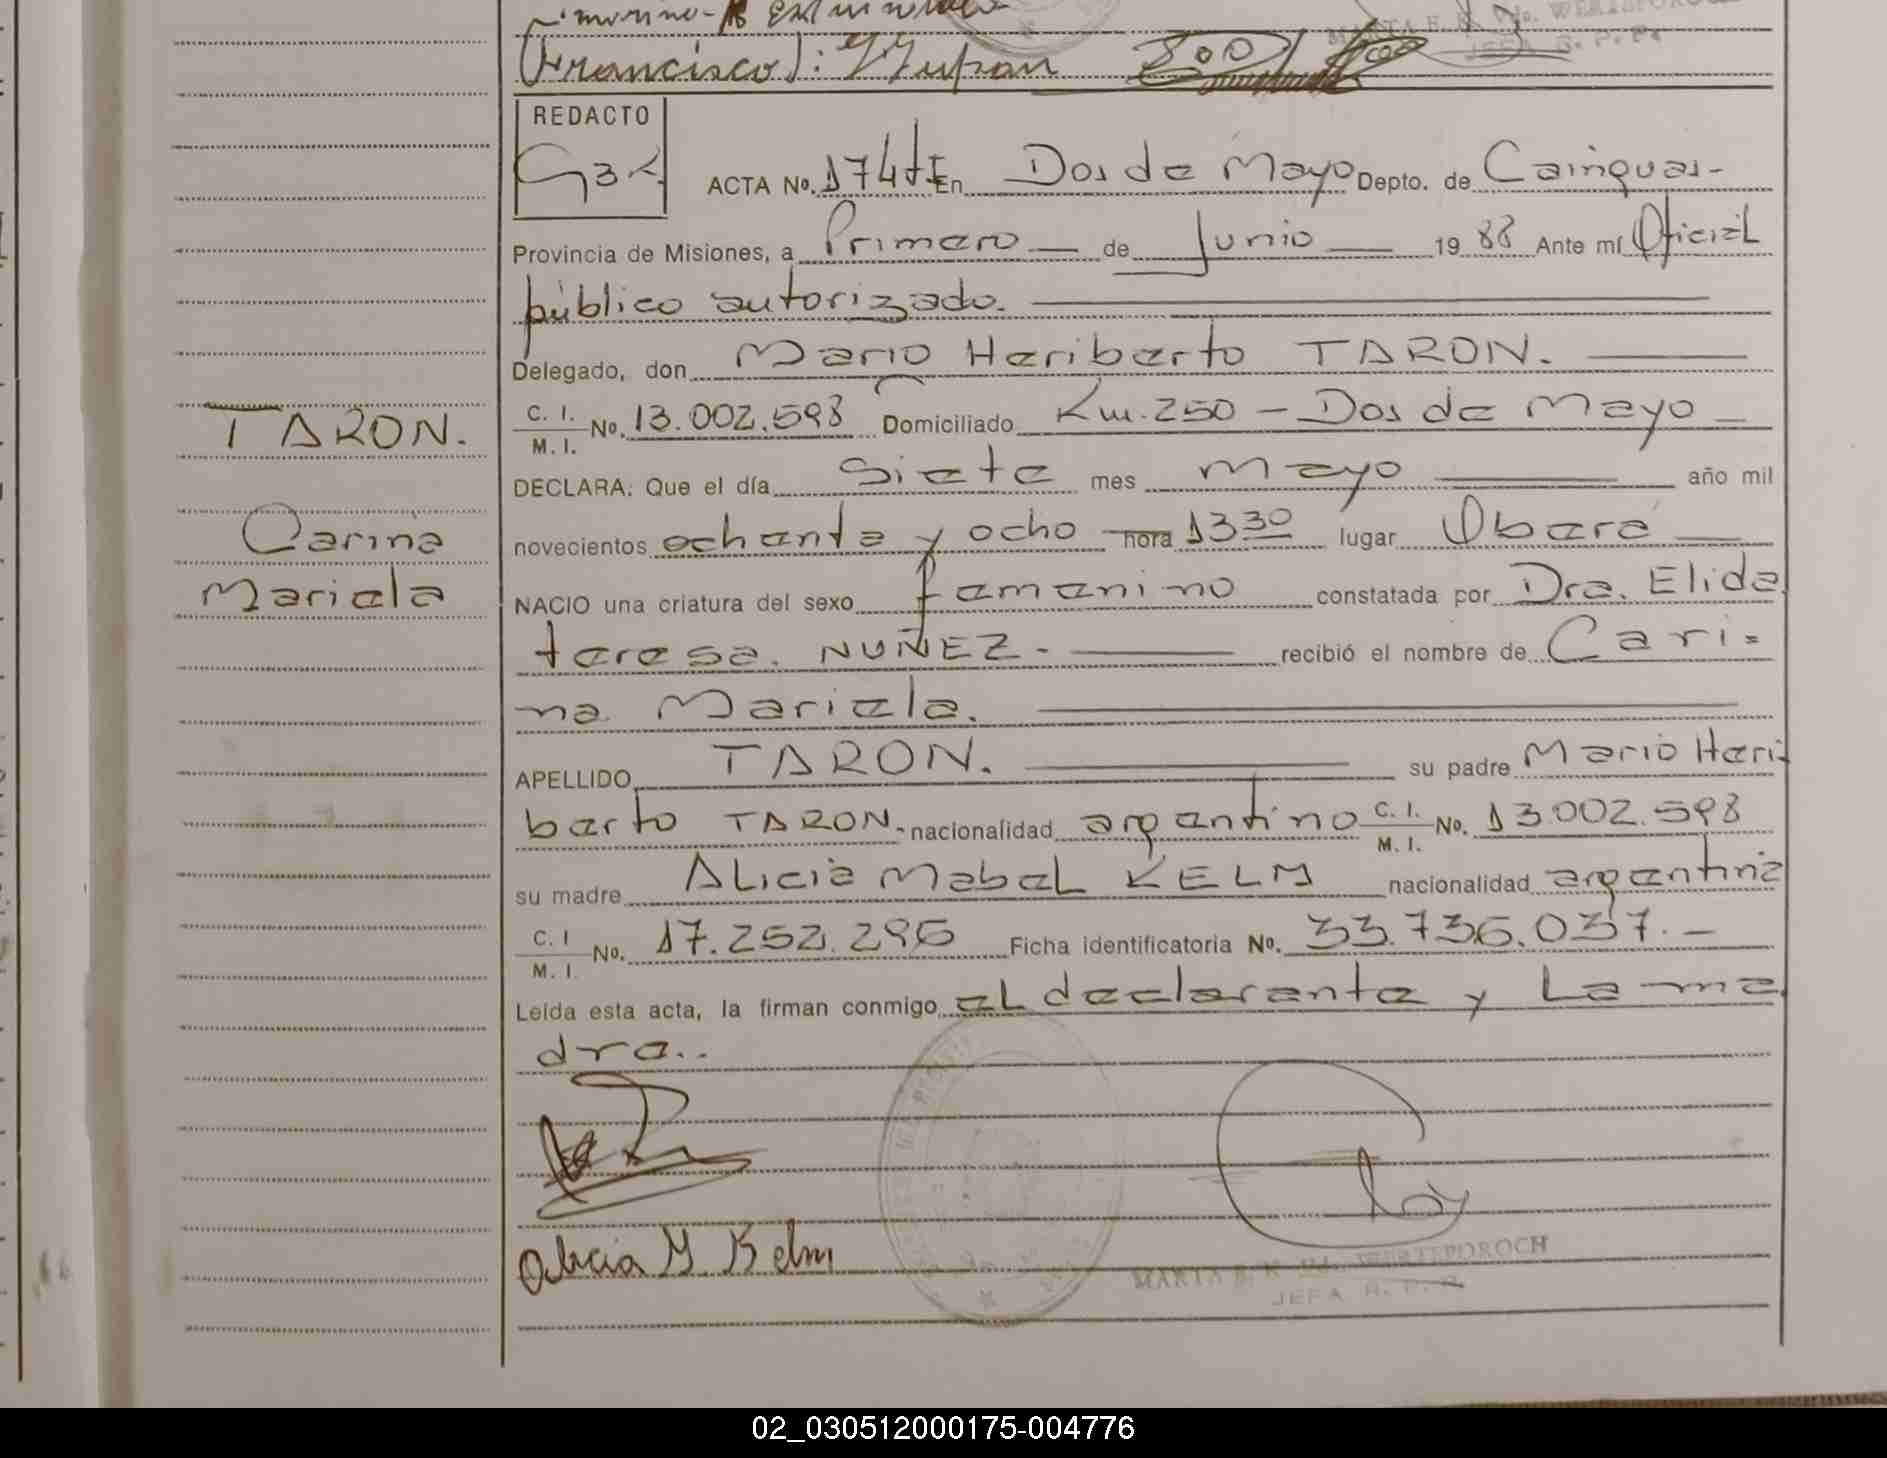 (Francisco): Yupan
REDACTO
ACTA No. 174 En Dos de Mayo Depto. de Cainguas-
Provincia de Misiones, a Primero — de Junio — 19 88 Ante mí Oficial
público autorizado.
Delegado, don Mario Heriberto TARON.
C. I. / M. I. No. 13.002.598 Domiciliado Km. 250 - Dos de Mayo
TARON.
DECLARA: Que el día Siete mes Mayo año mil
novecientos ochenta y ocho hora 13 30 lugar Oberá
Carina
Mariela
NACIO una criatura del sexo femenino constatada por Dra. Elida
teresa. NUÑEZ. - recibió el nombre de Cari=
na Mariela.
APELLIDO TARON. su padre Mario Heri-
berto TARON. nacionalidad argentino C. I. / M. I. No. 13.002.598
su madre Alicia Mabel KELM nacionalidad argentina
C. I / M. I. No. 17.252.295 Ficha identificatoria No. 33.736.037. -
Leída esta acta, la firman conmigo el declarante y la ma
dre..
Alicia M Kelm
MARTA E. K. Vda. WERTEPOROCH
JEFA R. P. P.
02_030512000175-004776